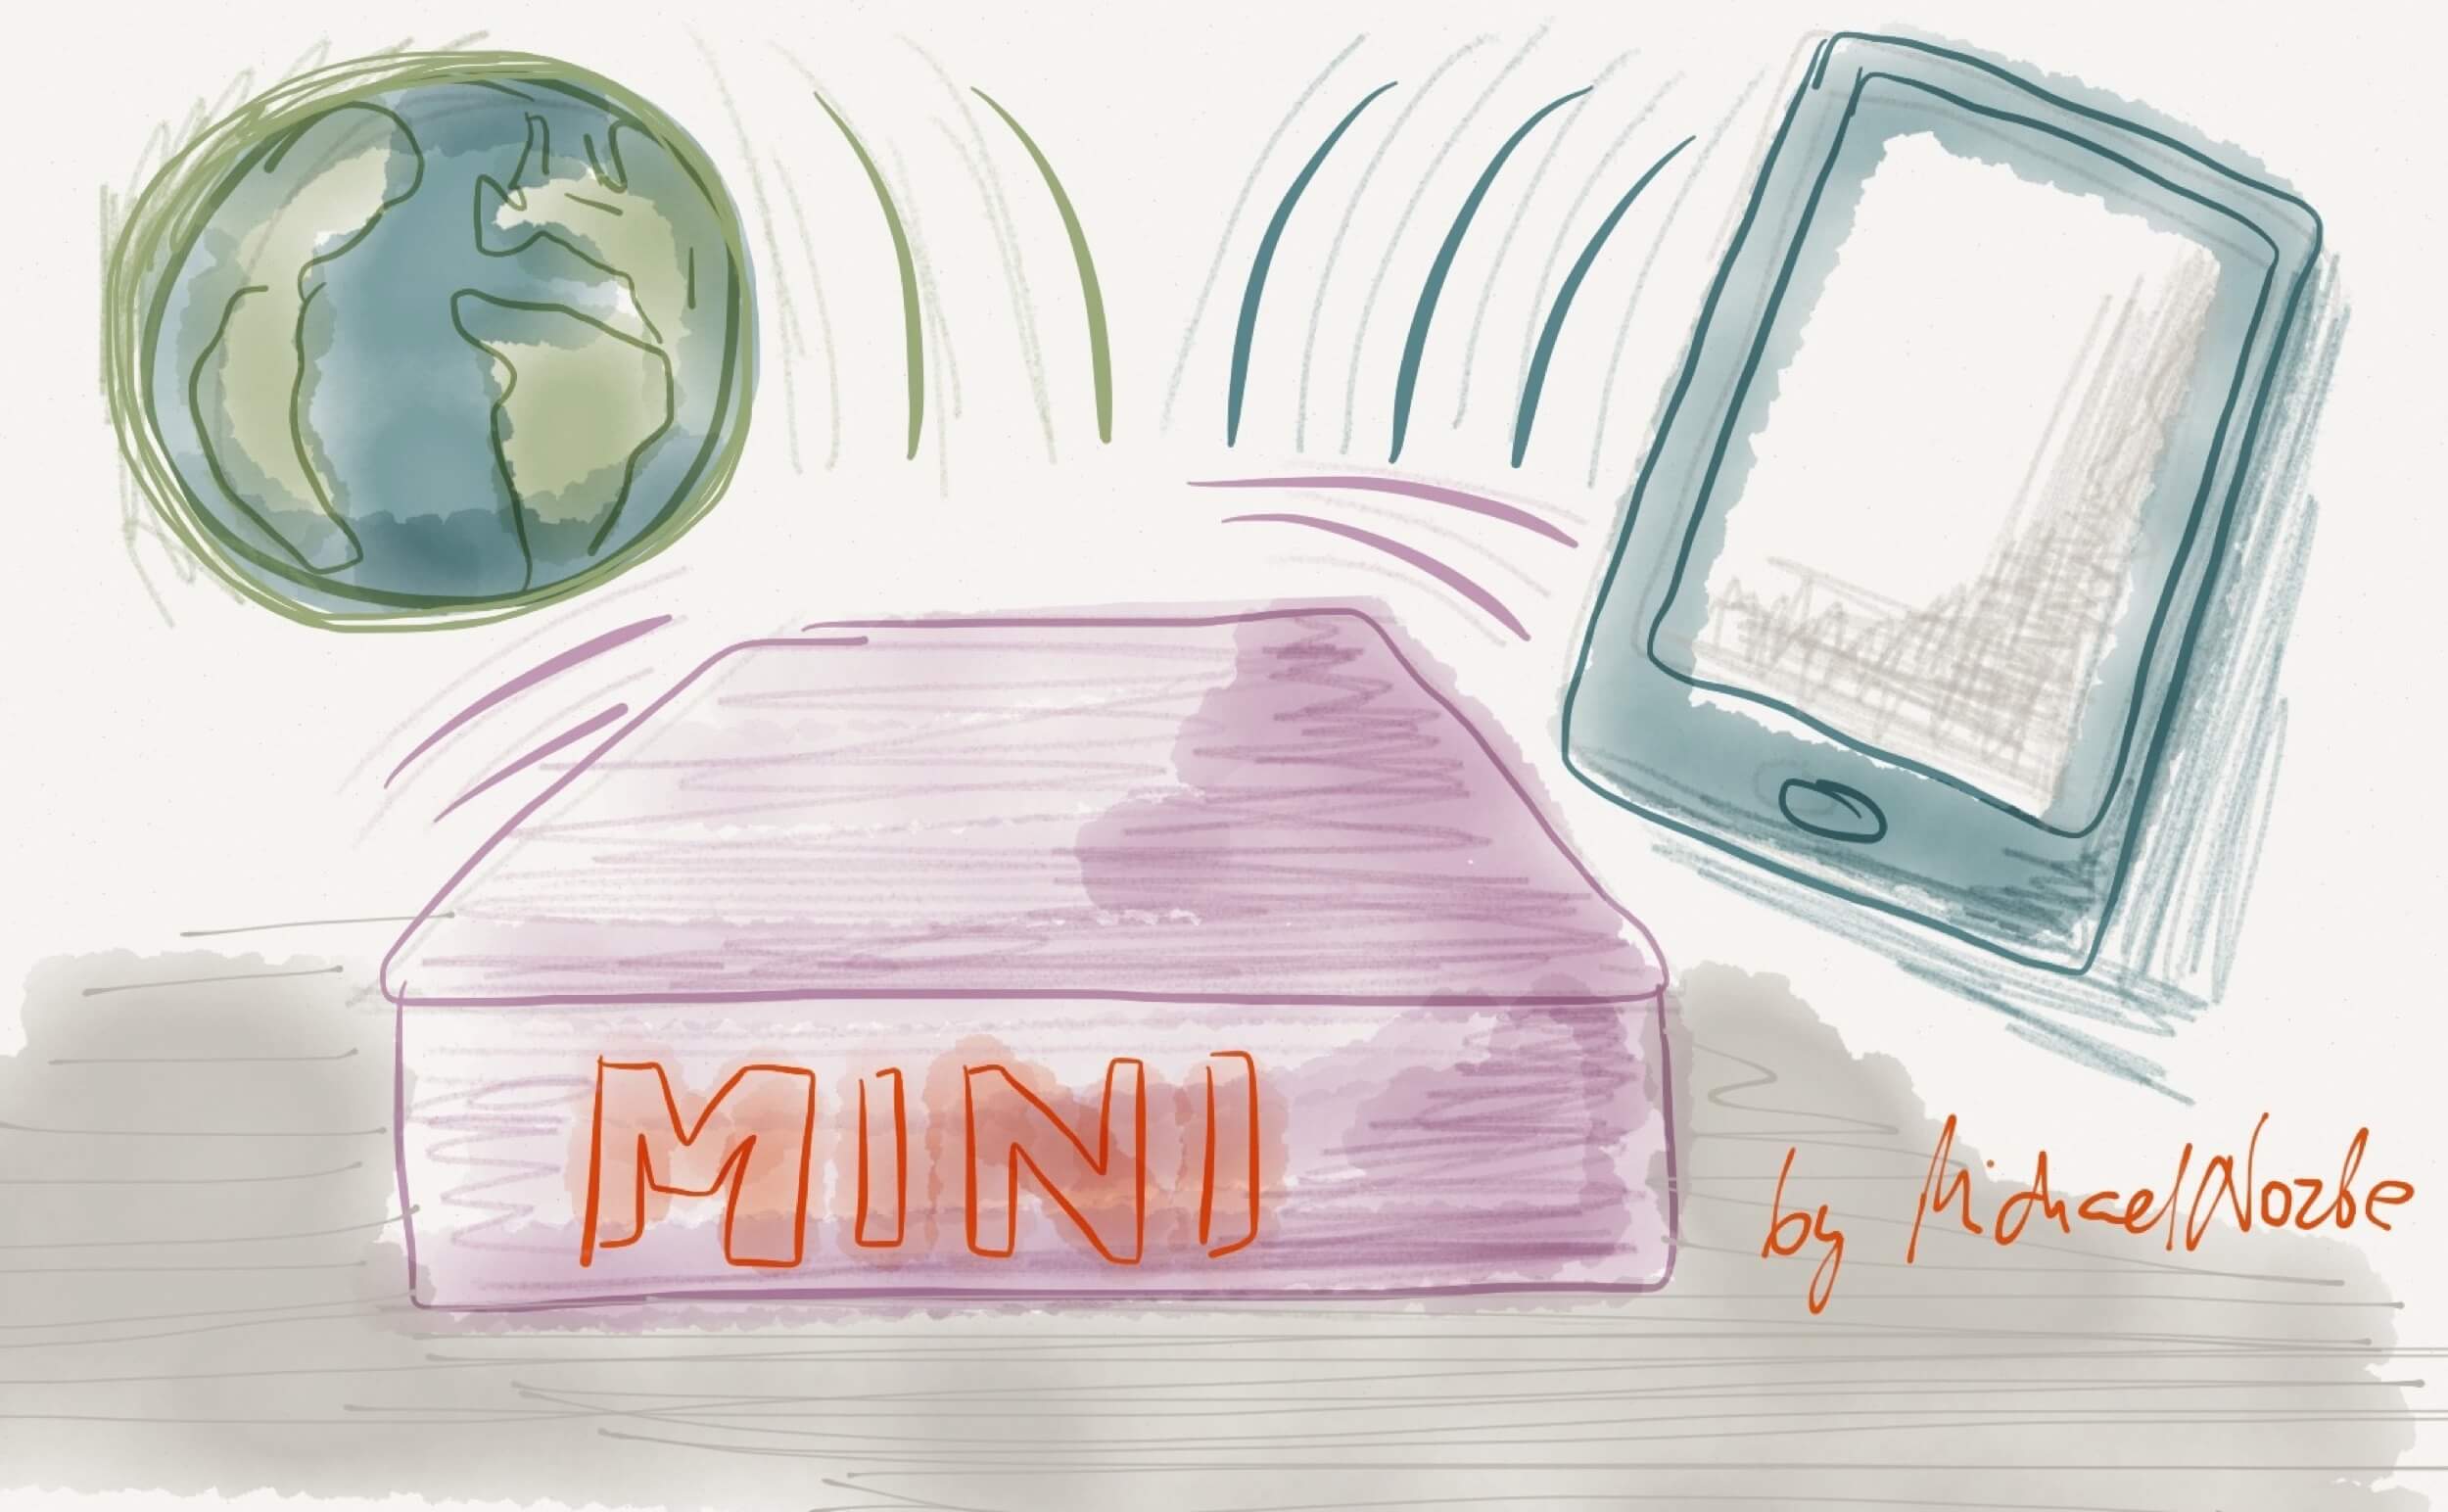 MINI
by Michael Nozbe